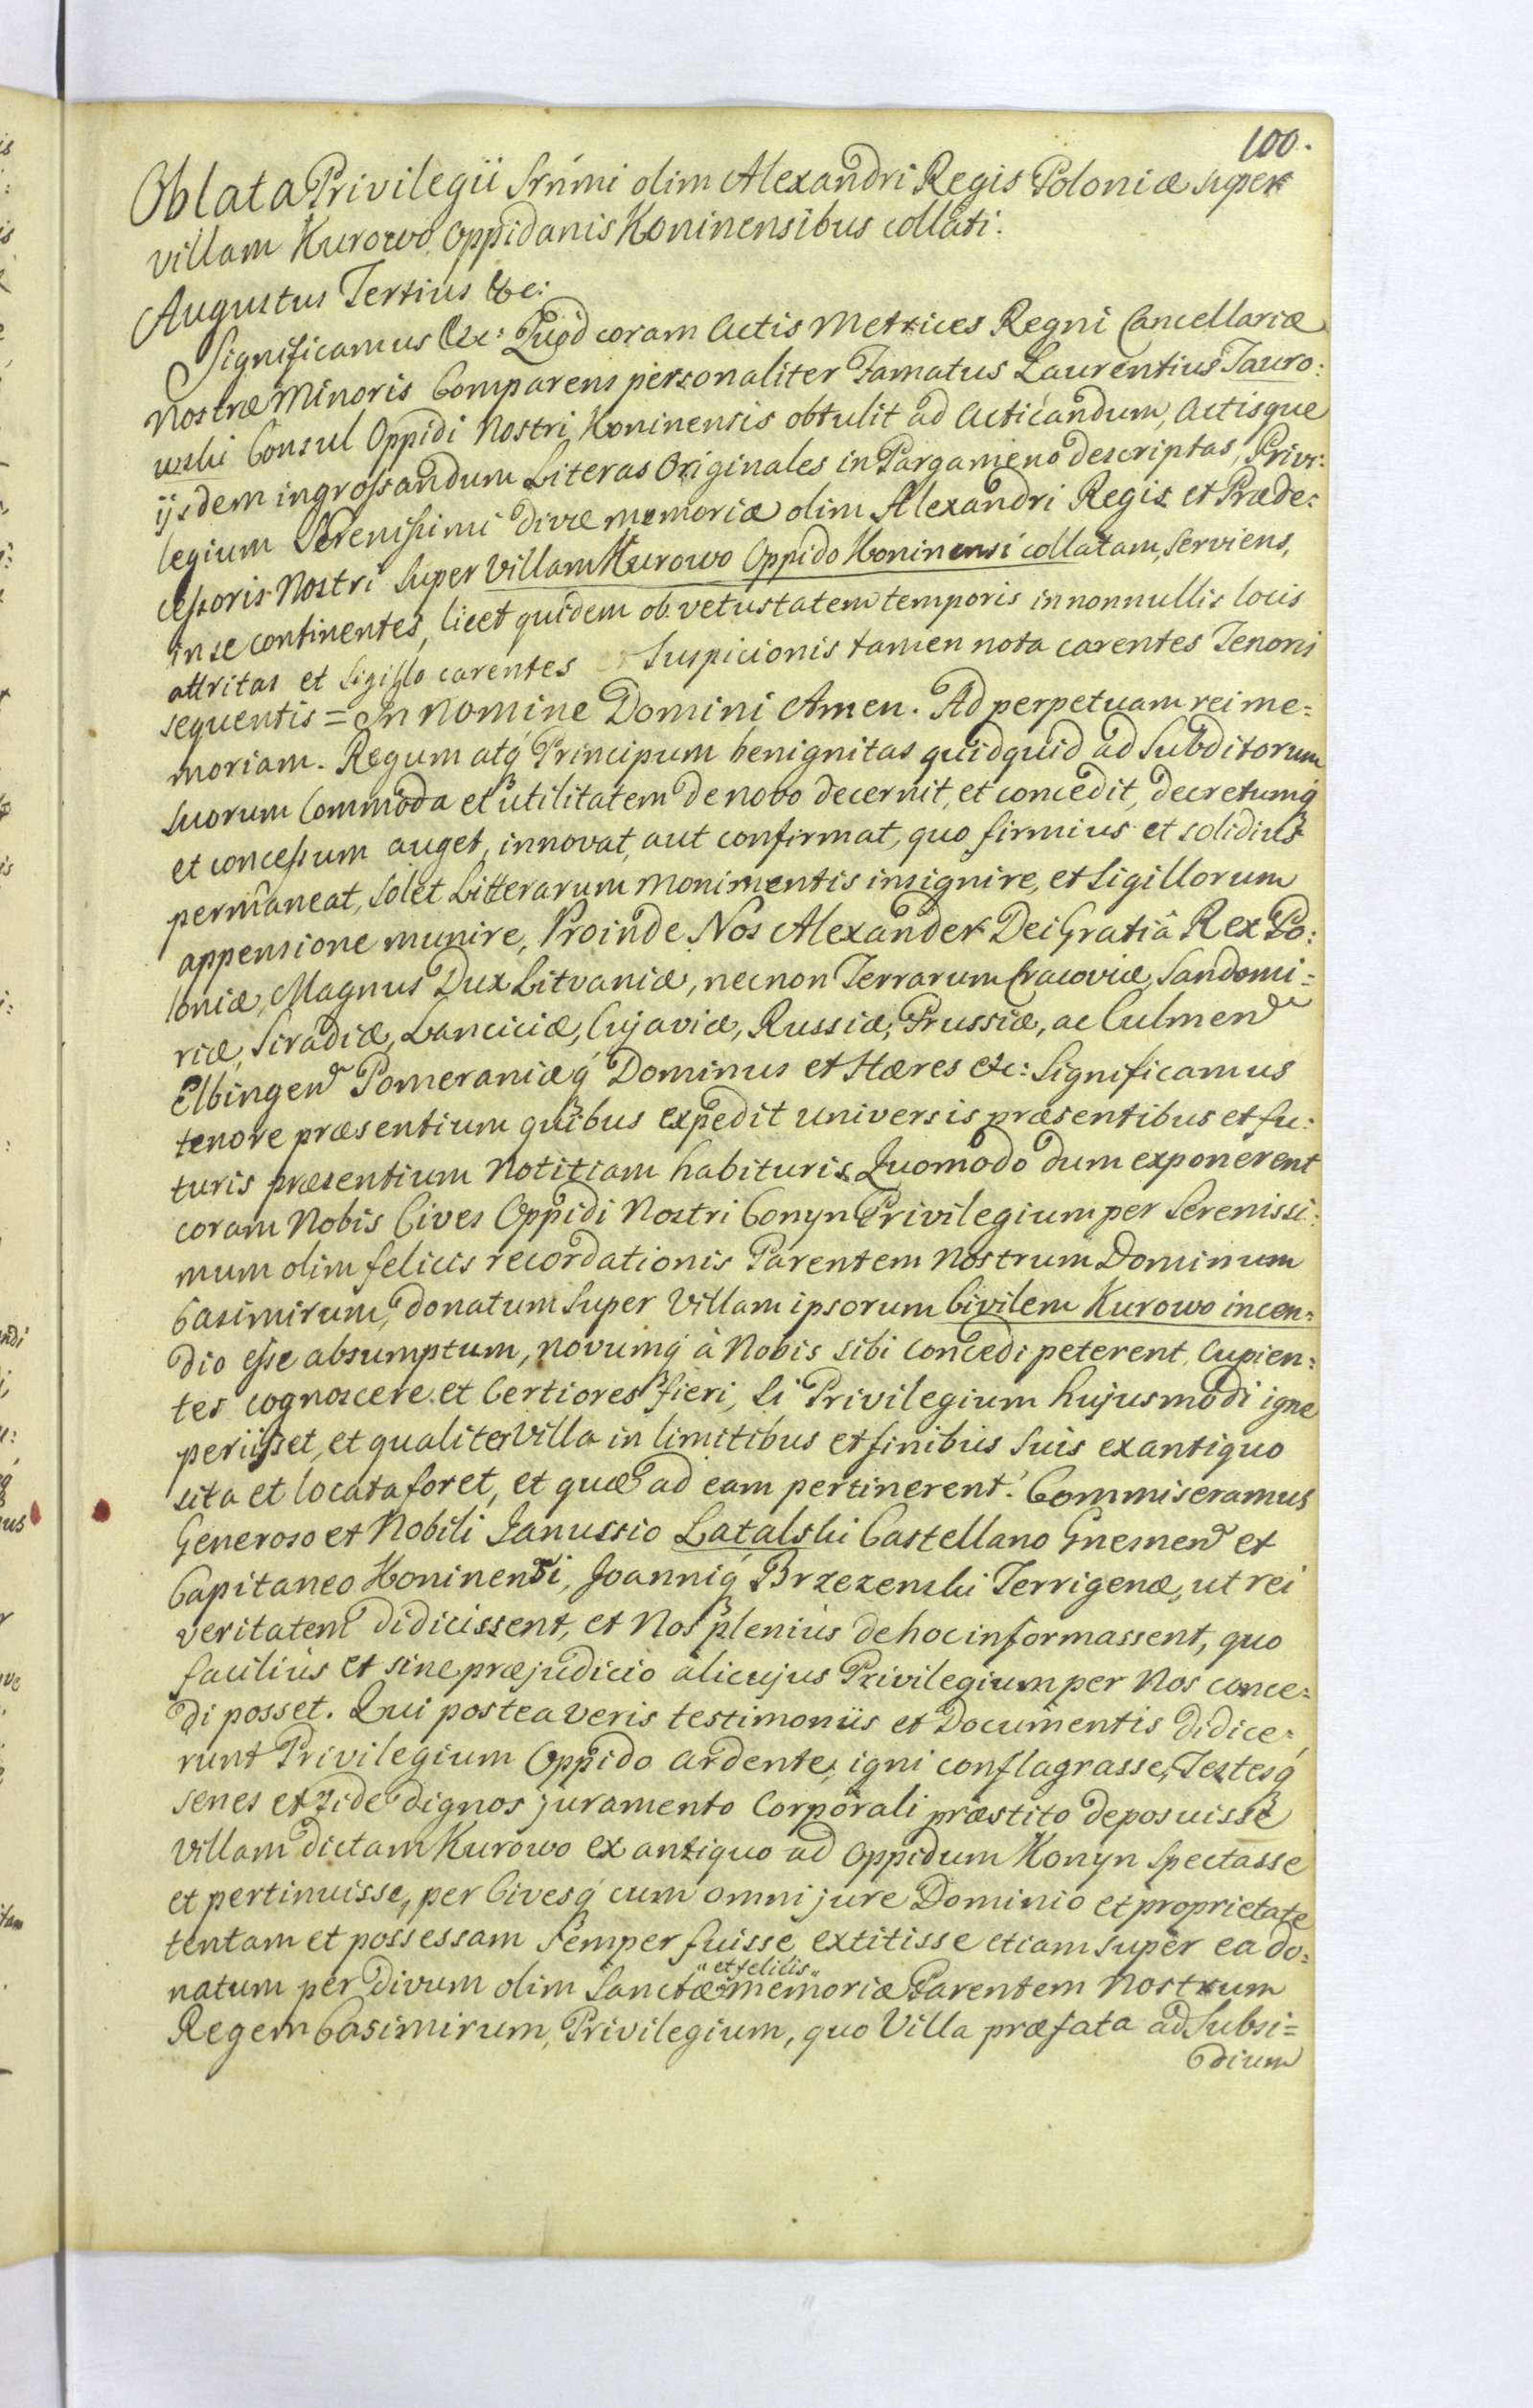 100.
Oblata Privilegii Srńmi olim Alexandri Regis Poloniæ super
villam Kurowo Oppidanis Koninensibus collati.
Augustus Tertius &c:
Significamus &c: Quod coram Actis Metrices Regni Cancellariæ
Nostræ Minoris Comparens personaliter Famatus Laurentius Tauro:
wski Consul Oppidi Nostri Koninensis obtulit ad Acticandum, Actisque
ijsdem ingrossandum Literas Originales in Pargameno descriptas, Privi:
legium Serenissimi Divæ memoriæ olim Alexandri Regis et Præde:
cessoris Nostri super Villam Kurowo Oppido Koninensi collatam, serviens,
in se continentes, licet quidem ob vetustatem temporis in nonnullis locis
attritas et Sigillo carentes Suspicionis tamen nota carentes Tenoris
sequentis = In Nomine Domini Amen. Ad perpetuam rei me=
moriam. Regum atq́ Principum benignitas quidquid ad Subditorum
suorum Commoda et utilitatem de novo decernit, et concedit, decretumq́
et concessum auget, innovat, aut confirmat, quo firmius et solidius
permâneat, solet Litterarum Monimentis insignire, et Sigillorum
appensione munire, Proinde Nos Alexander Dei Gratiâ Rex Po:
loniæ, Magnus Dux Litvaniæ, necnon Terrarum Cracoviæ, Sandomi=
riæ, Siradiæ, Lanciciæ, Cujaviæ, Russiæ, Prussiæ, ac Culmen
Elbingen Pomeraniæq́ Dominus et Hæres &c: Significamus
tenore præsentium quibus expedit universis præsentibus et fu:
turis præsentium Notitiam habituris. Quomodo dum exponerent
coram Nobis Cives Oppidi Nostri Conyn Privilegium per Serenissi:
mum olim felicis recordationis Parentem Nostrum Dominum
Casimirum, donatum super Villam ipsorum Civilem Kurowo incen=
dio esse absumptum, novumq́ à Nobis sibi concedi peterent, Cupien=
tes cognoscere et Certiores fieri, si Privilegium hujusmodi igne
periisset, et qualiter Villa in limitibus et finibus suis ex antiquo
sita et locata foret, et quæ ad eam pertinerent. Commiseramus
Generoso et Nobili Janussio Latalski Castellano Gnesnen et
Capitaneo Koninensi, Joanniq́ Brzezenski Terrigenæ, ut rei
veritatem didicissent, et Nos plenius de hoc informassent, quo
facilius et sine præjudicio alicujus Privilegium per Nos conce=
di posset. Qui postea veris testimoniis et Documentis didice=
runt Privilegium Oppido ardente, igni conflagrasse, Testesq́
senes et fide dignos juramento Corporali præstito deposuisse
Villam dictam Kurowo ex antiquo ad Oppidum Konyn Spectasse
et pertinuisse, per Civesq́ cum omni jure Dominio et proprietate
tentam et possessam semper fuisse extitisse etiam super ea do=
"et felilis"
natum per Divum olim Sanctæ memoriæ Parentem Nostrum
Regem Casimirum, Privilegium, quo Villa præfata ad Subsi=
dium